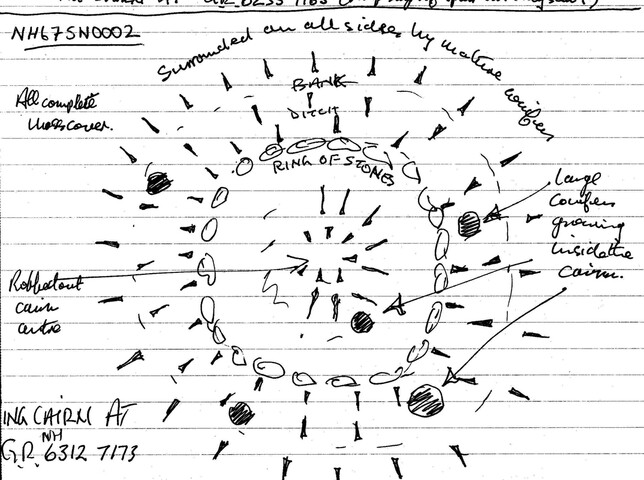 NH67SN0002
Surrounded on all sides by mature conifers
All complete
moss cover.
BANK
DITCH
RING OF STONES
Large
conifers
growing
inside the
cairn.
Robbed out
cairn
centre
ING CAIRN AT
NH
G.R. 6312 7173